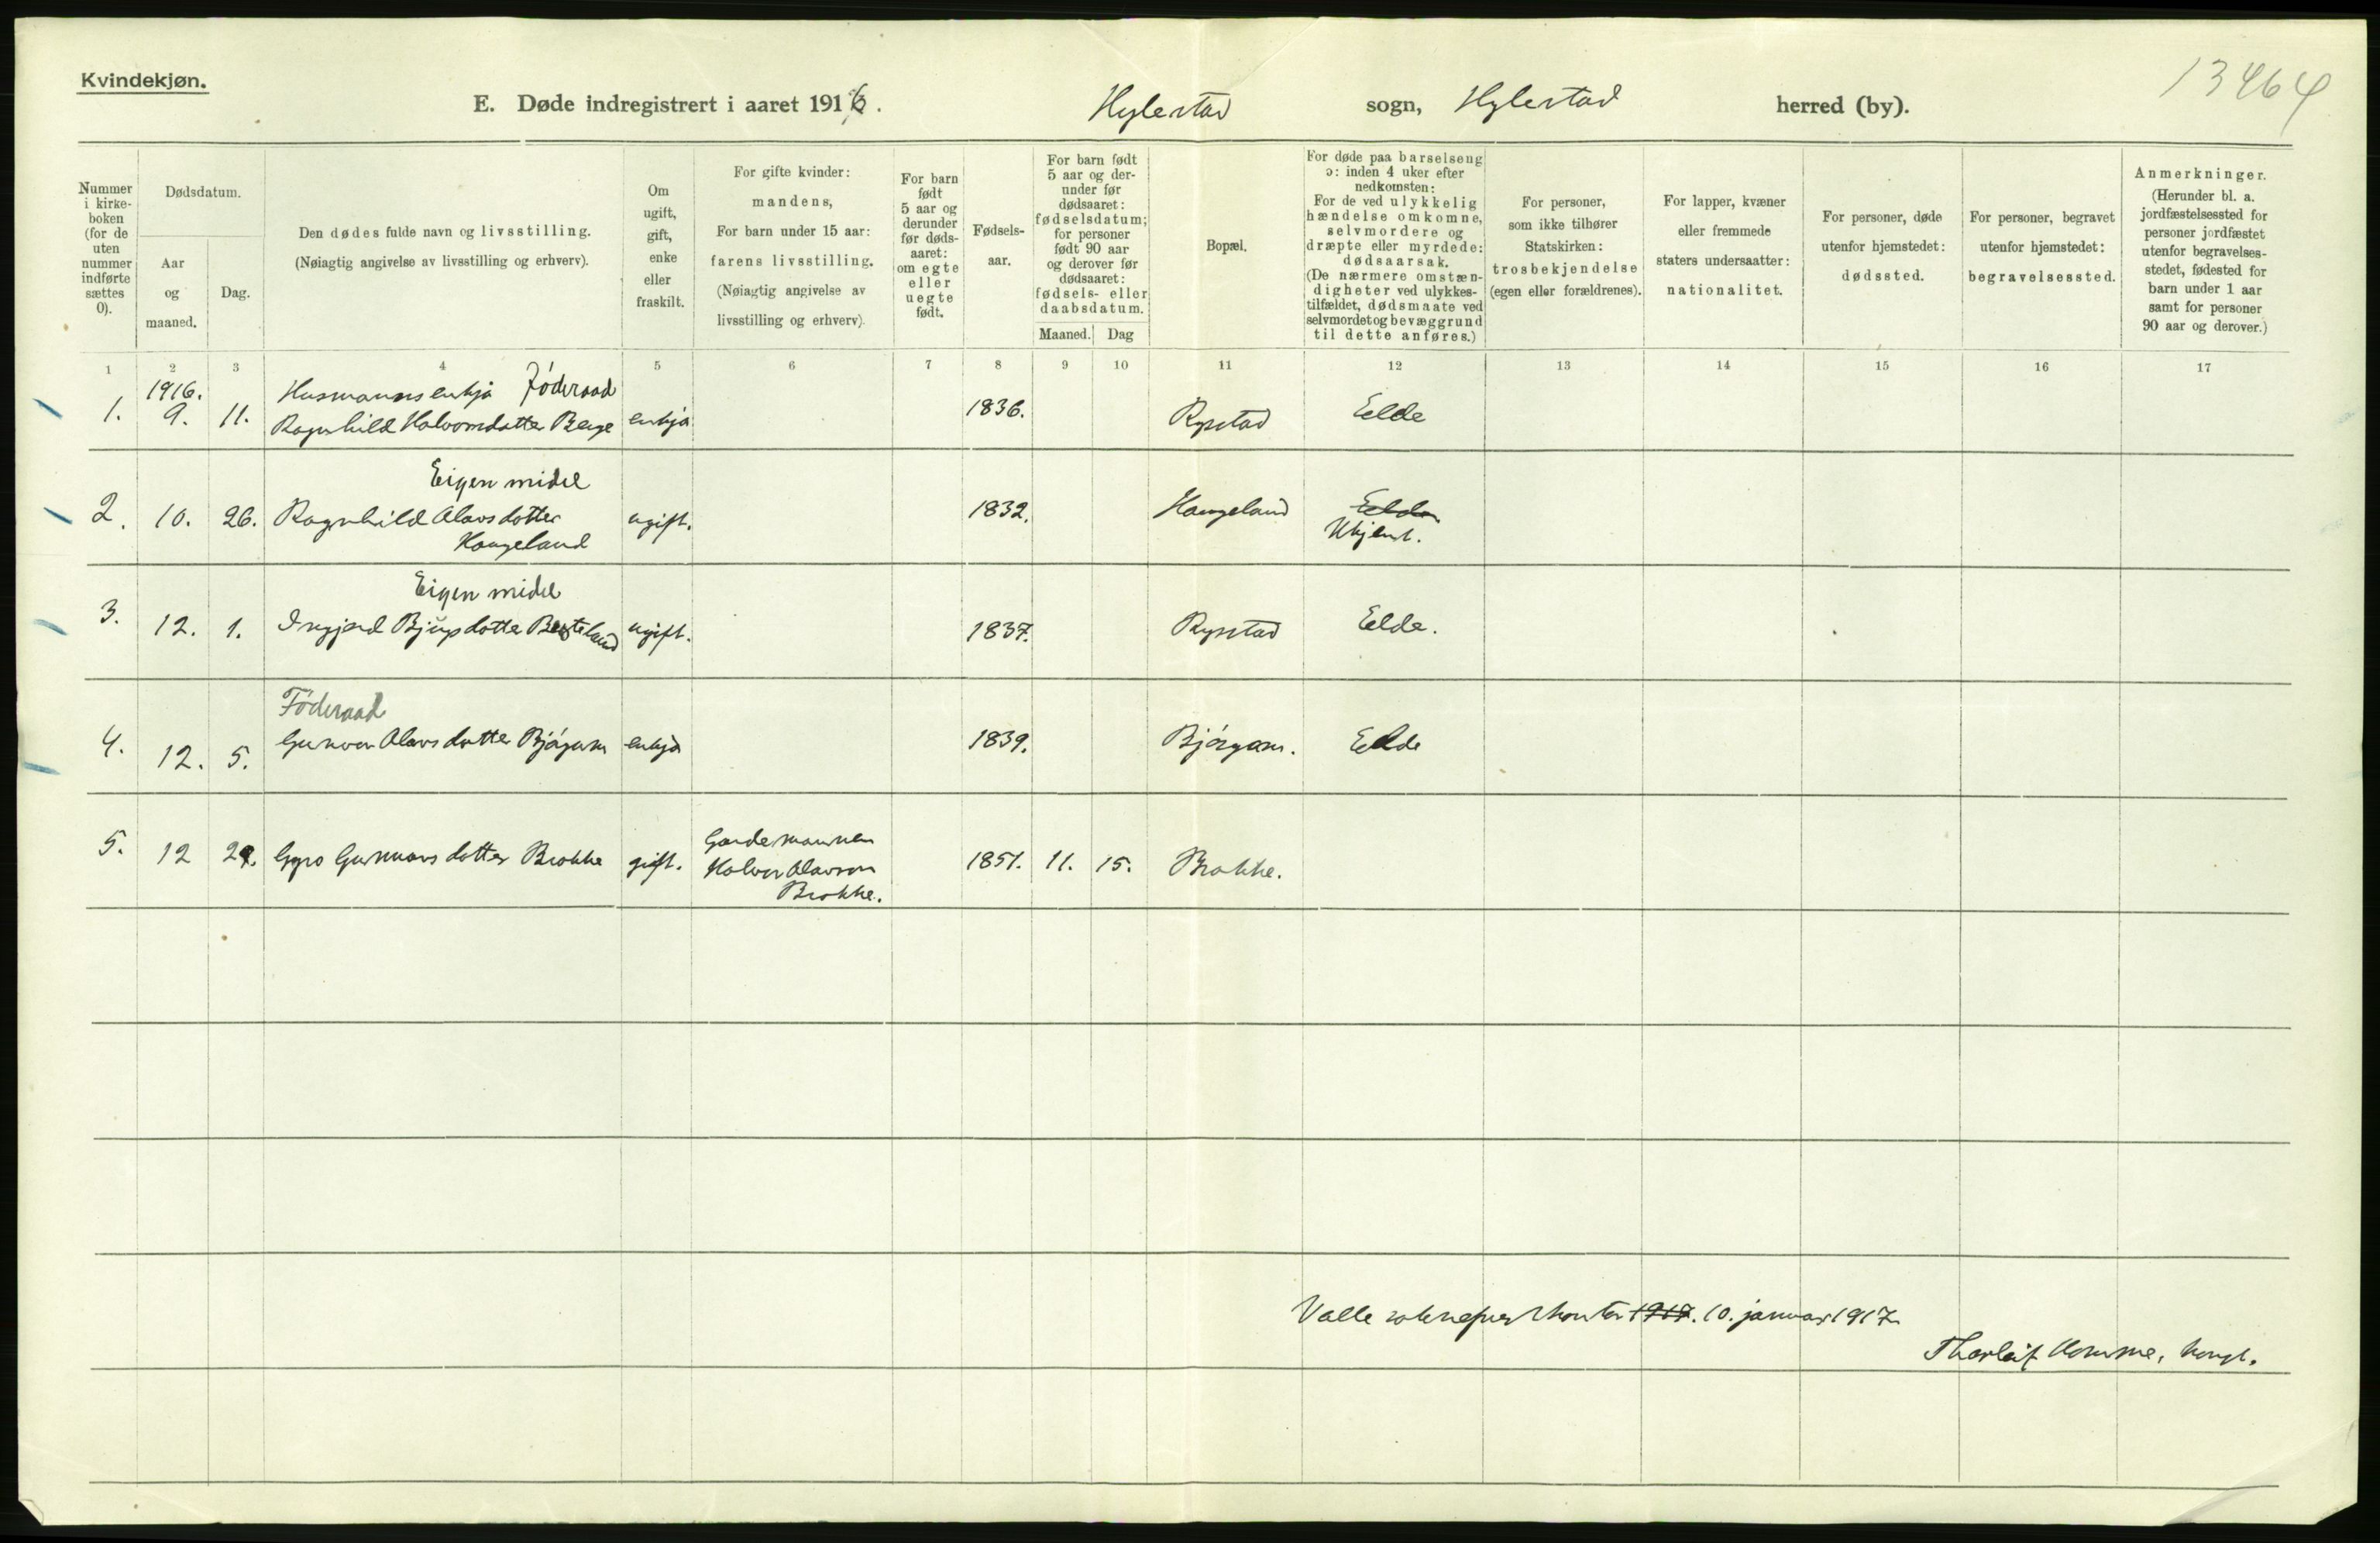 Kvindekjøn.
13464
E. Døde indregistrert i aaret 1916. Hylestad sogn, Hylestad herred (by).
Nummer i kirke-boken (for de uten nummer indførte sættes 0).
Dødsdatum.
Aar og maaned.
Dag.
Den dødes fulde navn og livsstilling.
(Nøiagtig angivelse av livsstilling og erhverv).
Om ugift, gift, enke eller fraskilt.
For gifte kvinder:
mandens,
For barn under 15 aar:
farens livsstilling.
(Nøiagtig angivelse av
livsstilling og erhverv).
For barn født 5 aar og derunder før døds-aaret: om egte eller uegte født.
Fødsels-aar.
For barn født 5 aar og der-under før dødsaaret: fødselsdatum; for personer født 90 aar og derover før dødsaaret: fødsels- eller daabsdatum.
Maaned. Dag
Bopæl.
For døde paa barselseng
ɔ: inden 4 uker efter
nedkomsten:
For de ved ulykkelig
hændelse omkomne,
selvmordere og
dræpte eller myrdede:
dødsaarsak.
(De nærmere omstæn-
digheter ved ulykkes-
tilfældet, dødsmaate ved
selvmordet og bevæggrund
til dette anføres.)
For personer,
som ikke tilhører
Statskirken:
trosbekjendelse
(egen eller forældrenes).
For lapper, kvæner
eller fremmede
staters undersaatter:
nationalitet.
For personer, døde
utenfor hjemstedet:
dødssted.
For personer, begravet
utenfor hjemstedet:
begravelsessted.
Anmerkninger.
(Herunder bl. a.
jordfæstelsessted for
personer jordfæstet
utenfor begravelses-
stedet, fødested for
barn under 1 aar
samt for personer
90 aar og derover.)
1 2 3 4 5 6 7 8 9 10 11 12 13 14 15 16 17
1916. Husmanns enkja Föderaad
1. 9. 11. Ragnhild Halvorsdotter Berge enkja 1836. Rysstad Elde
Eigen midel
2. 10. 26. Ragnhild Olavsdotter ugift. 1832. Haugeland Elde
Haugeland Ukjent.
Eigen midel
3. 12. 1. Ingjerd Bjugsdotter ugift. 1837. Rysstad Elde.
Föderaad
4. 12. 5. Gunvor Olavsdotter Bjørgum enkja 1839. Bjørgum. Elde
Gardemannen
5. 12 29. Gyro Gunnarsdotter Brokke gift. Halvor Olavson 1851. 11. 15. Brokke.
Brokke.
Valle sokneprestkontor 1917. 10. januar 1917
Tharleif Homme, konst.